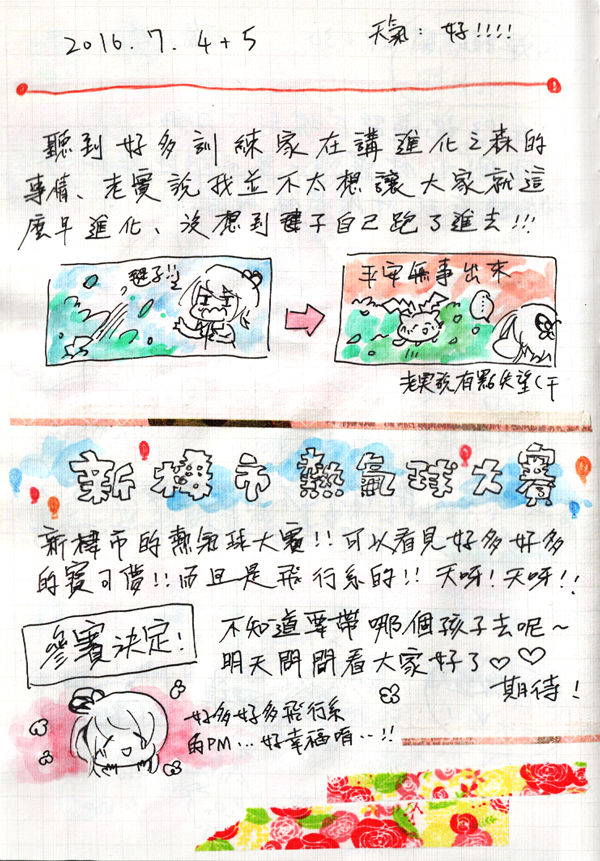 2016.7.4+5
天氣：好!!!!
聽到好多訓練家在講進化之森的
事情、老實說我並不太想讓大家就這
麼早進化、沒想到毽子自己跑了進去!!!
毽子!!
平安無事出來
老實說有點失望(干
新樺市熱氣球大賽
新樺市的熱氣球大賽!!可以看見好多好多
的寶可夢!!而且是飛行系的!!天呀!天呀!!
參賽決定!
不知道要帶哪個孩子去呢~
明天問問看大家好了♡♡
期待!
好多好多飛行系
的PM...好幸福唷..!!